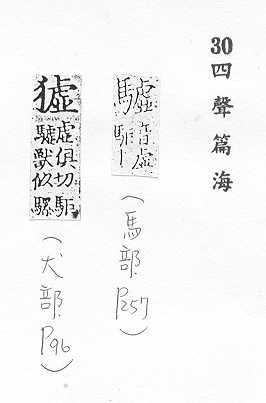 30
四聲篇海
驉
音虛
驅
(馬部.P257)
㺏
虛俱切駏
驉獸似騾
(犬部.P96)